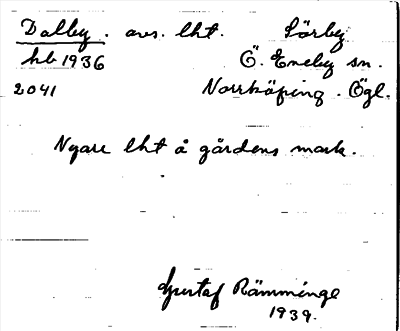 Dalby. avs. lht. Sörby
hb 1936 Ö. Eneby sn.
2041 Norrköping. Ögl.
Nyare lht å gårdens mark.
Gustaf Rämminge
1939.